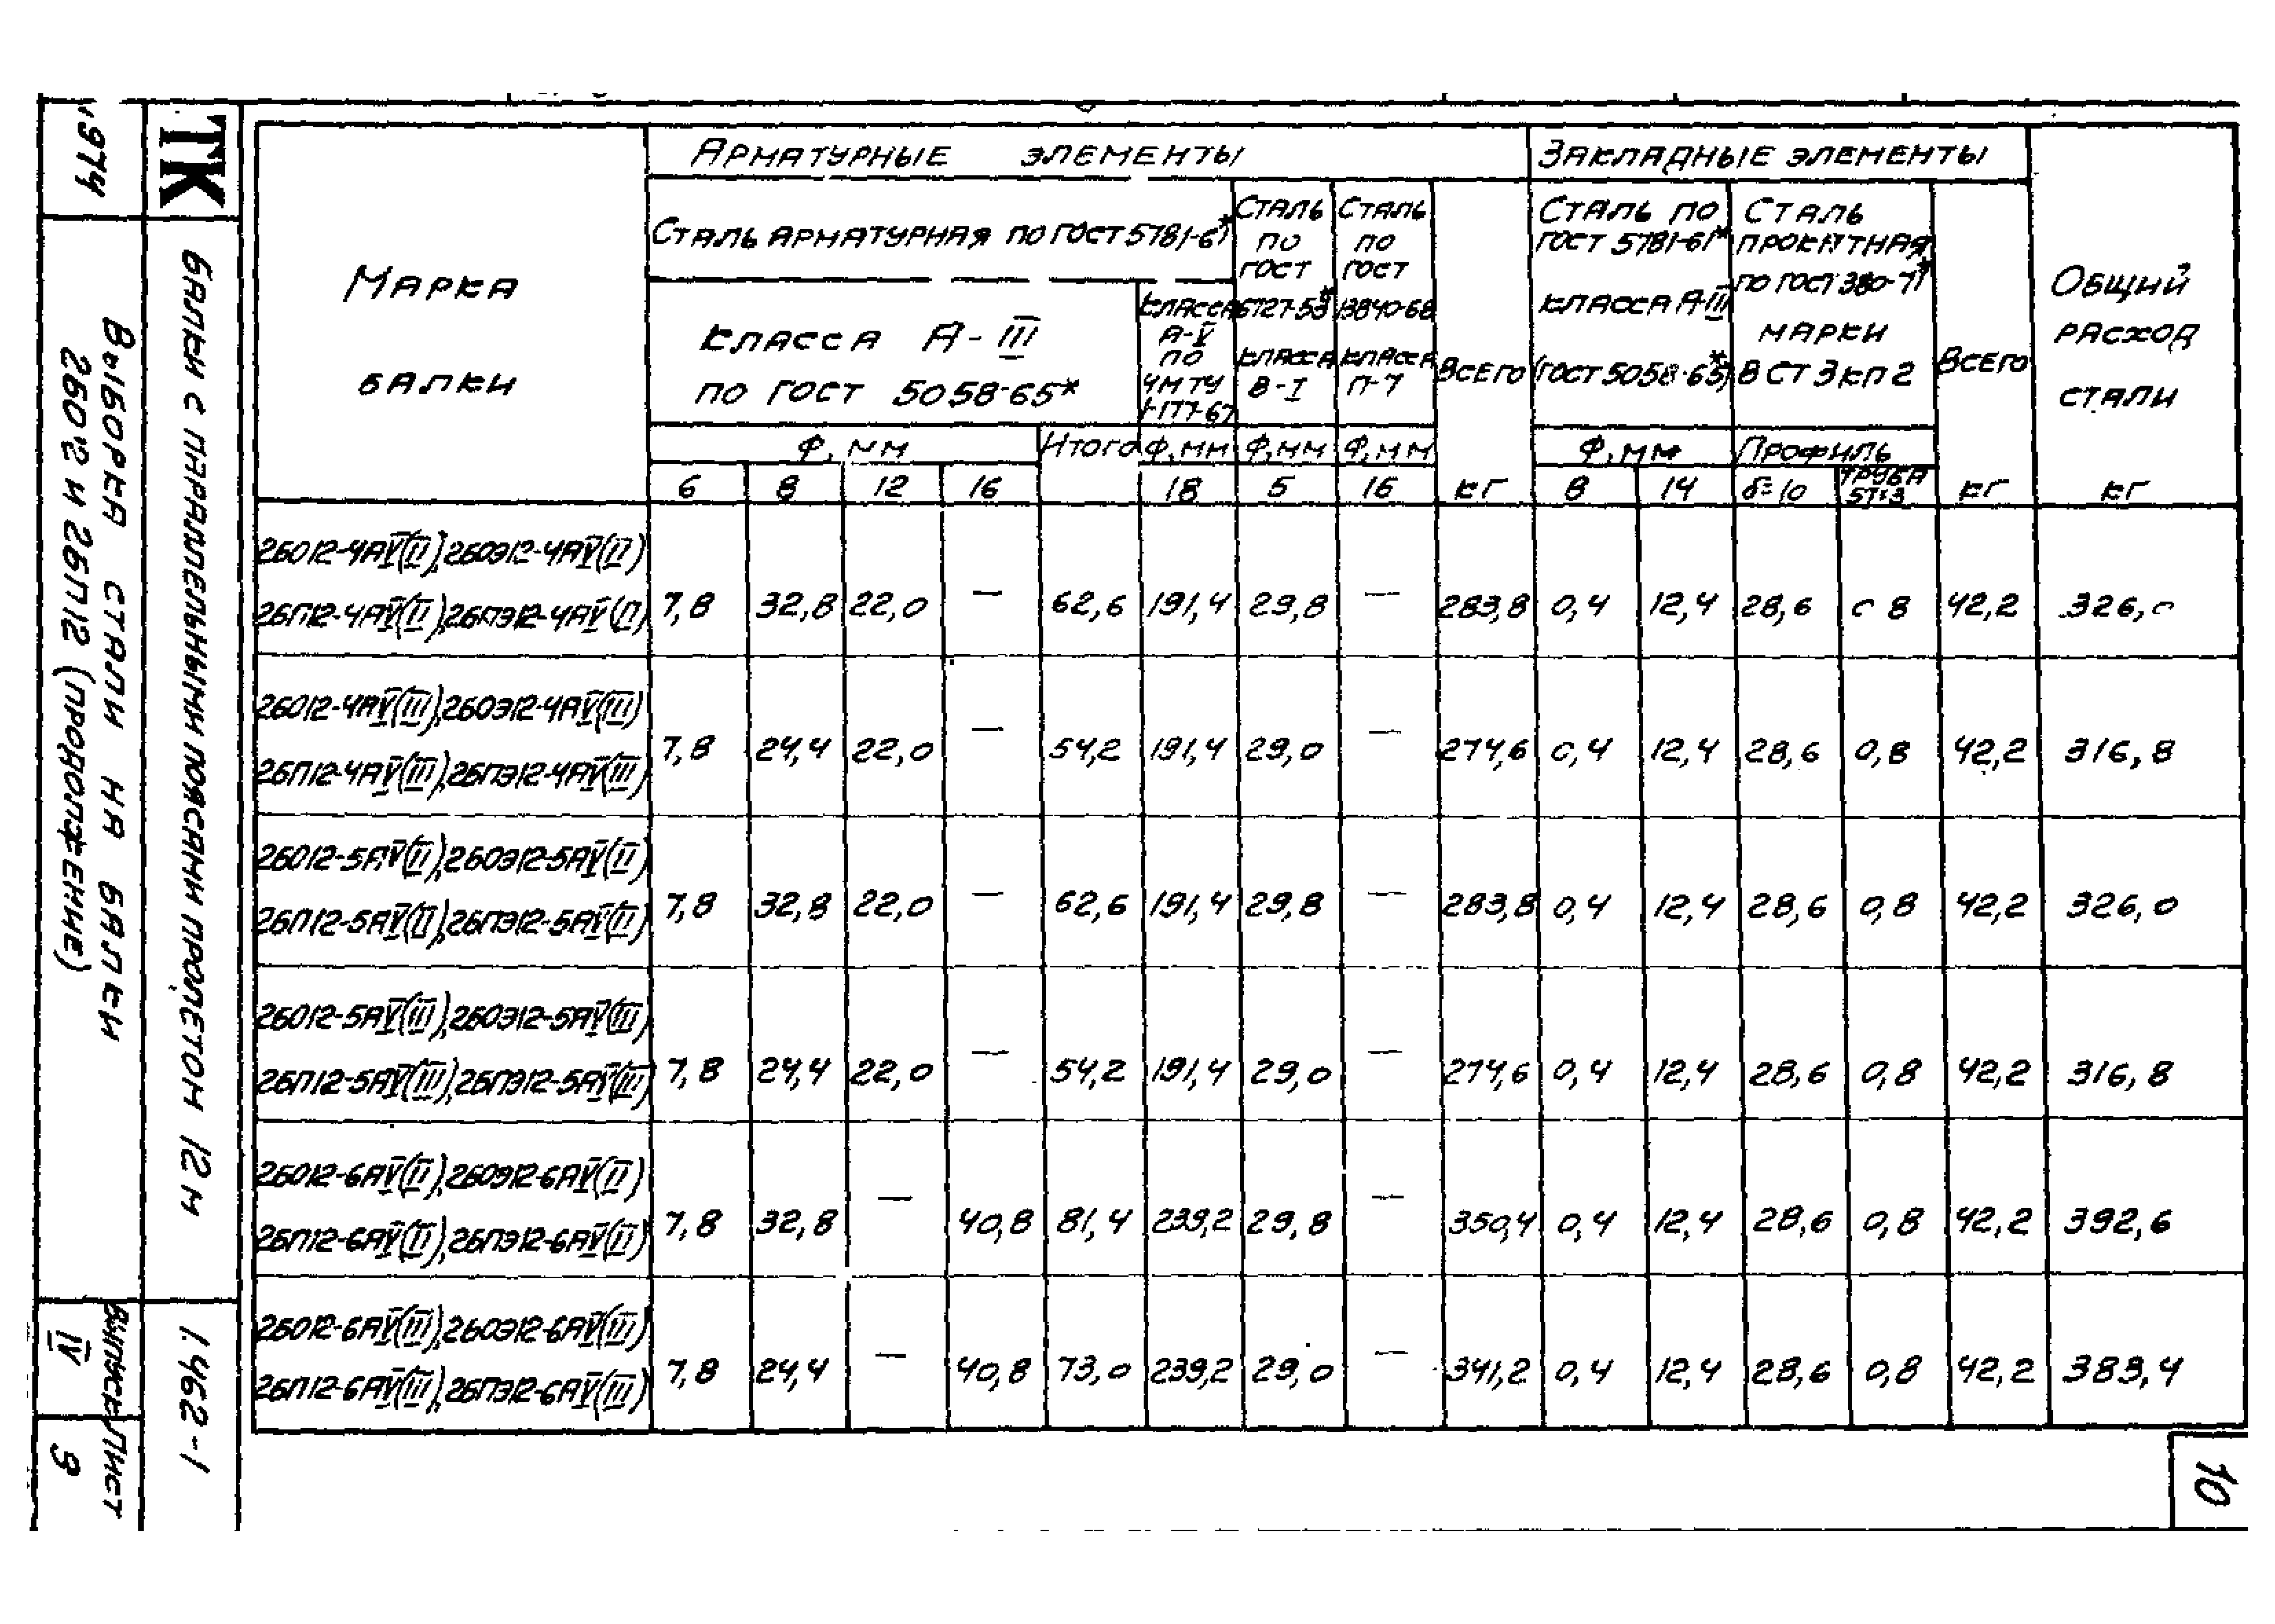 1974
ТК
Балки с параллельными поясами пролетом 12 м
Выборка стали на балки
2БО12 и 2БП12 (продолжение)
Выпуск Лист
IV 9
1.462-1
Марка балки
Арматурные элементы
Закладные элементы
Общий расход стали
Сталь арматурная по ГОСТ 5781-61*
класса А-III
по ГОСТ 5058-65*
класса А-V по ЧМТУ 1-177-67
Сталь по ГОСТ 6727-53* класса В-I
Сталь по ГОСТ 13840-68 класса П-7
Всего
Сталь по ГОСТ 5781-61* класса А-III (ГОСТ 5058-65*)
Сталь прокатная по ГОСТ 380-71* марки В Ст 3 кп 2
Всего
Ф, мм Итого Ф, мм Ф, мм Ф, мм Ф, мм Профиль
6 8 12 16 18 5 16 кг 8 14 δ=10 Труба 57×3 кг кг
2БО12-4АV(II), 2БОЭ12-4АV(II)
2БП12-4АV(II), 2БПЭ12-4АV(II) 7,8 32,8 22,0 — 62,6 191,4 29,8 — 283,8 0,4 12,4 28,6 0 8 42,2 326,0
2БО12-4АV(III), 2БОЭ12-4АV(III)
2БП12-4АV(III), 2БПЭ12-4АV(III) 7,8 24,4 22,0 — 54,2 191,4 29,0 — 274,6 0,4 12,4 28,6 0,8 42,2 316,8
2БО12-5АV(II), 2БОЭ12-5АV(II)
2БП12-5АV(II), 2БПЭ12-5АV(II) 7,8 32,8 22,0 — 62,6 191,4 29,8 — 283,8 0,4 12,4 28,6 0,8 42,2 326,0
2БО12-5АV(III), 2БОЭ12-5АV(III)
2БП12-5АV(III), 2БПЭ12-5АV(III) 7,8 24,4 22,0 — 54,2 191,4 29,0 — 274,6 0,4 12,4 28,6 0,8 42,2 316,8
2БО12-6АV(II), 2БОЭ12-6АV(II)
2БП12-6АV(II), 2БПЭ12-6АV(II) 7,8 32,8 — 40,8 81,4 239,2 29,8 — 350,4 0,4 12,4 28,6 0,8 42,2 392,6
2БО12-6АV(III), 2БОЭ12-6АV(III)
2БП12-6АV(III), 2БПЭ12-6АV(III) 7,8 24,4 — 40,8 73,0 239,2 29,0 — 341,2 0,4 12,4 28,6 0,8 42,2 383,4
10